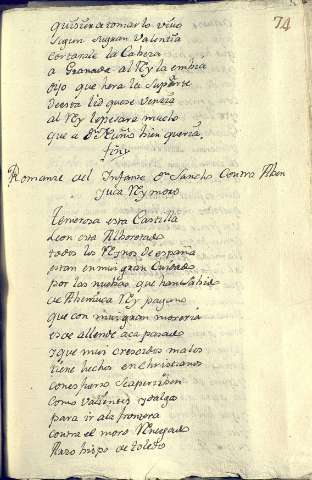 74
quisiera tomarlo vivo
segun su gran Valentia
cortarale la Cabeza
a Granada al Rey la embia
dijo que hera la suerte
de esta lid que se venzia
al Rey le pesara mucho
que a Dn Nuño bien queria.
fin
Romanze del Infante Dn Sancho Contra Aben
Juça Rey moro
Temerosa esta Castilla
Leon esta Alborotado
todos los Reynos de españa
estan en mui gran Cuidado
por las nuebas que han sabido
de Abenuca Rey pagano
que con mui gran moreria
es de allende aca pasado
y que mui crescidos males
tiene hechos en christianos
con esto se aperziben
como Valientes ydalgos
para ir a la frontera
contra el moro Renegado
Arzobispo de toledo